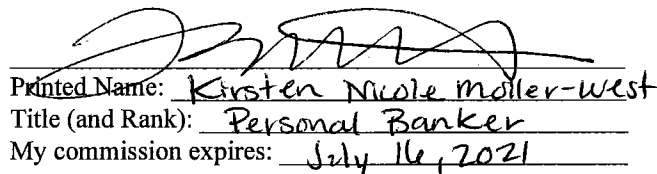 Printed Name: Kirsten Nicole Moller-West
Title (and Rank): Personal Banker
My commission expires: July 16, 2021